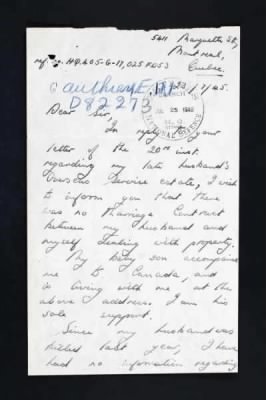 5611 Marquette St,
Montreal,
Quebec.
23/7/45.
D82273
JUL 25 1945
NATIONAL DEFENCE
Dear Sir,
In reply to your
letter of the 20th inst.
regarding my late husband's
Service estate, I wish
to inform you that there
was no Marriage Contract
between my husband and
myself dealing with property.
My baby son accompanied
me to Canada, and
is living with me at the
above address. I am his
sole support.
Since my husband was
killed last year, I have
had no information regarding